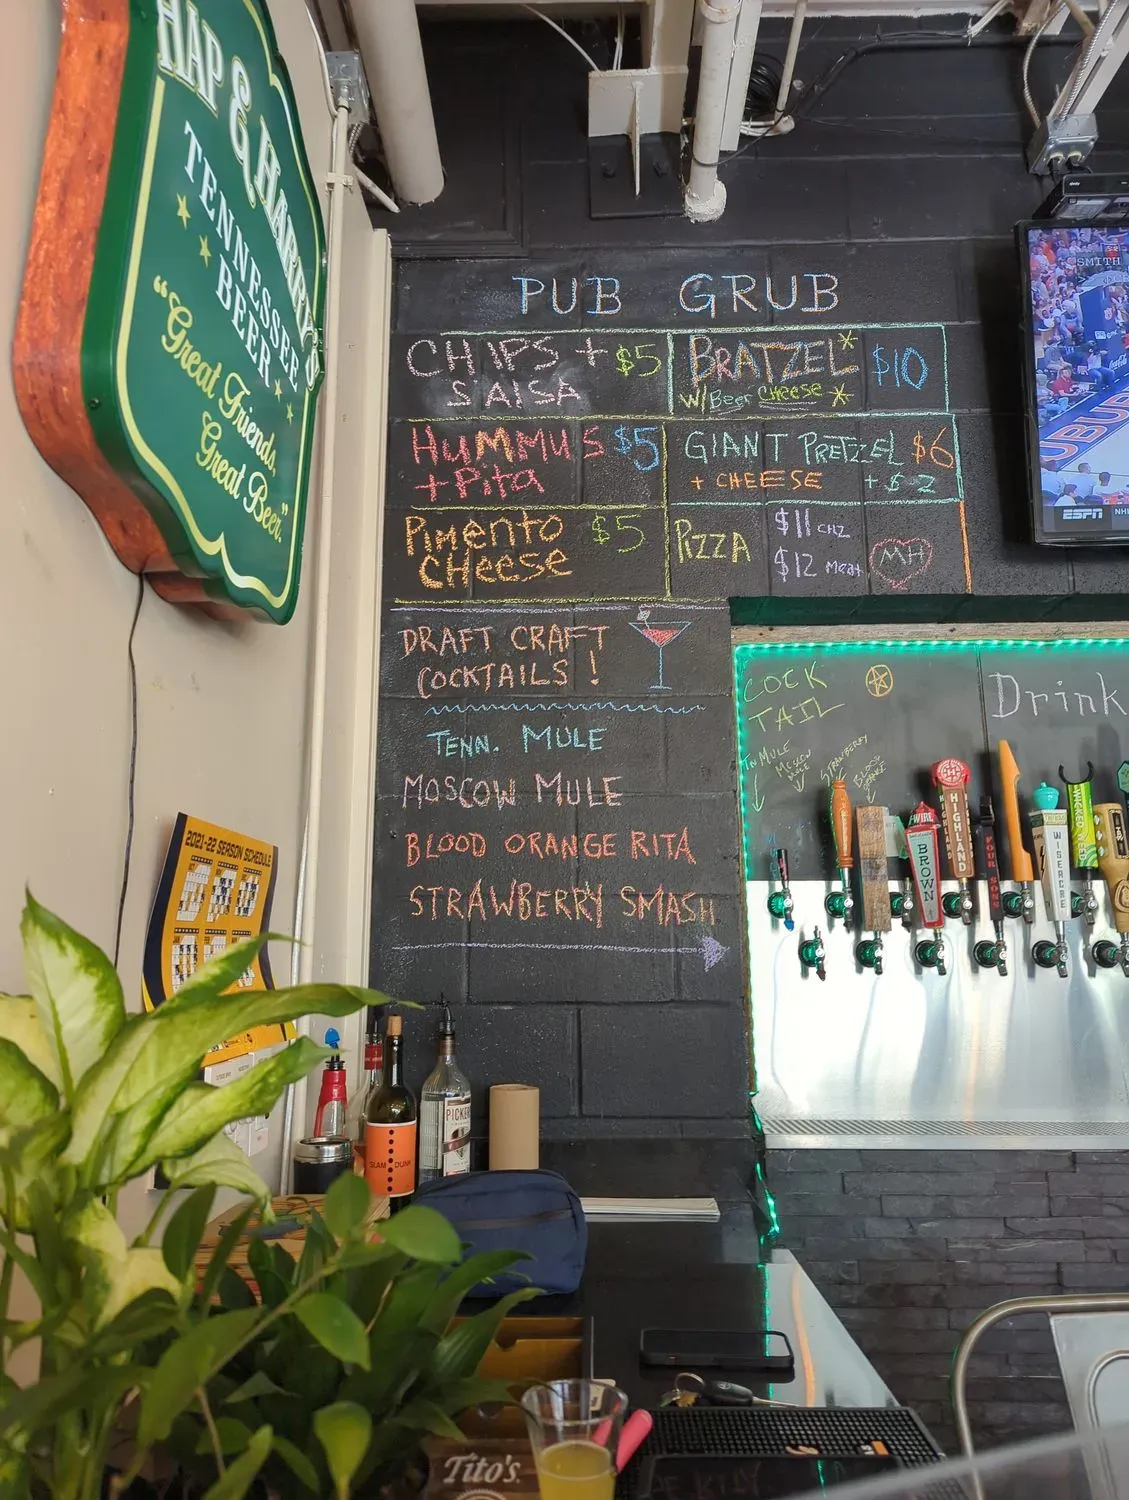 HAP & HARRY'S
TENNESSEE
BEER
"Great Friends,
Great Beer."
PUB GRUB
CHIPS + $5
SALSA
BRATZEL* $10
W/Beer Cheese *
HUMMUS $5
+ Pita
GIANT PRETZEL $6
+ CHEESE + $2
Pimento $5
CHeese
PIZZA
$11 CHZ
$12 Meat
MH
DRAFT CRAFT
COCKTAILS!
TENN. MULE
MOSCOW MULE
BLOOD ORANGE RITA
STRAWBERRY SMASH
COCK
TAIL
Drink
TN MULE
MOSCOW
MULE
STRAWBERRY
BLOOD
ORANGE
BROWN
HIGHLAND
WISEACRE
SMITH
ESPN
2021-22 SEASON SCHEDULE
SLAM DUNK
PICKERS
Tito's